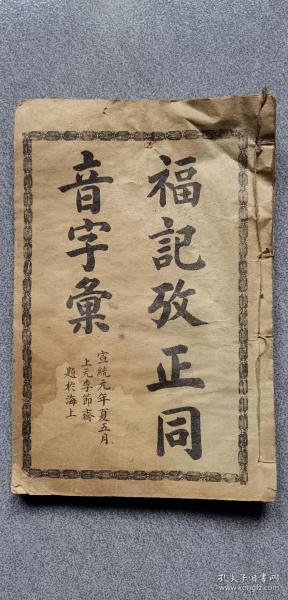 福記攷正同
音字彙
宣統元年夏五月
上元李節齋
題於海上
孔夫子旧书网
www.kongfz.com